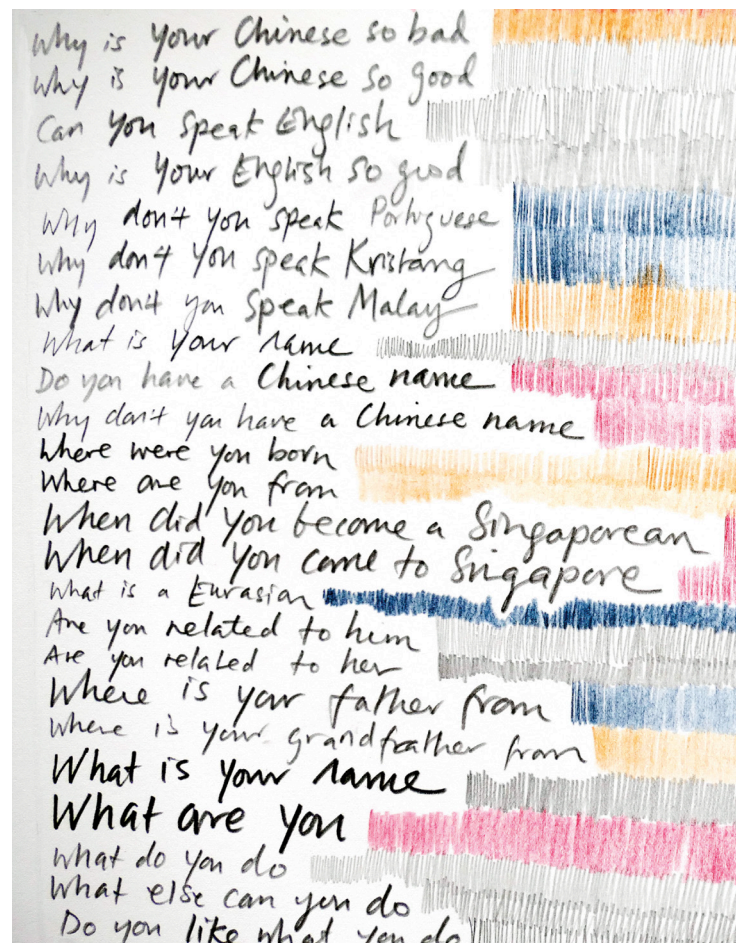 Why is your Chinese so bad
Why is your Chinese so good
Can you speak English
Why is your English so good
Why don't you speak Portuguese
Why don't you speak Kristang
Why don't you speak Malay
What is your name
Do you have a Chinese name
Why don't you have a Chinese name
Where were you born
Where are you from
When did you become a Singaporean
When did you come to Singapore
What is a Eurasian
Are you related to him
Are you related to her
Where is your father from
Where is your grandfather from
What is your name
What are you
What do you do
What else can you do
Do you like what you do